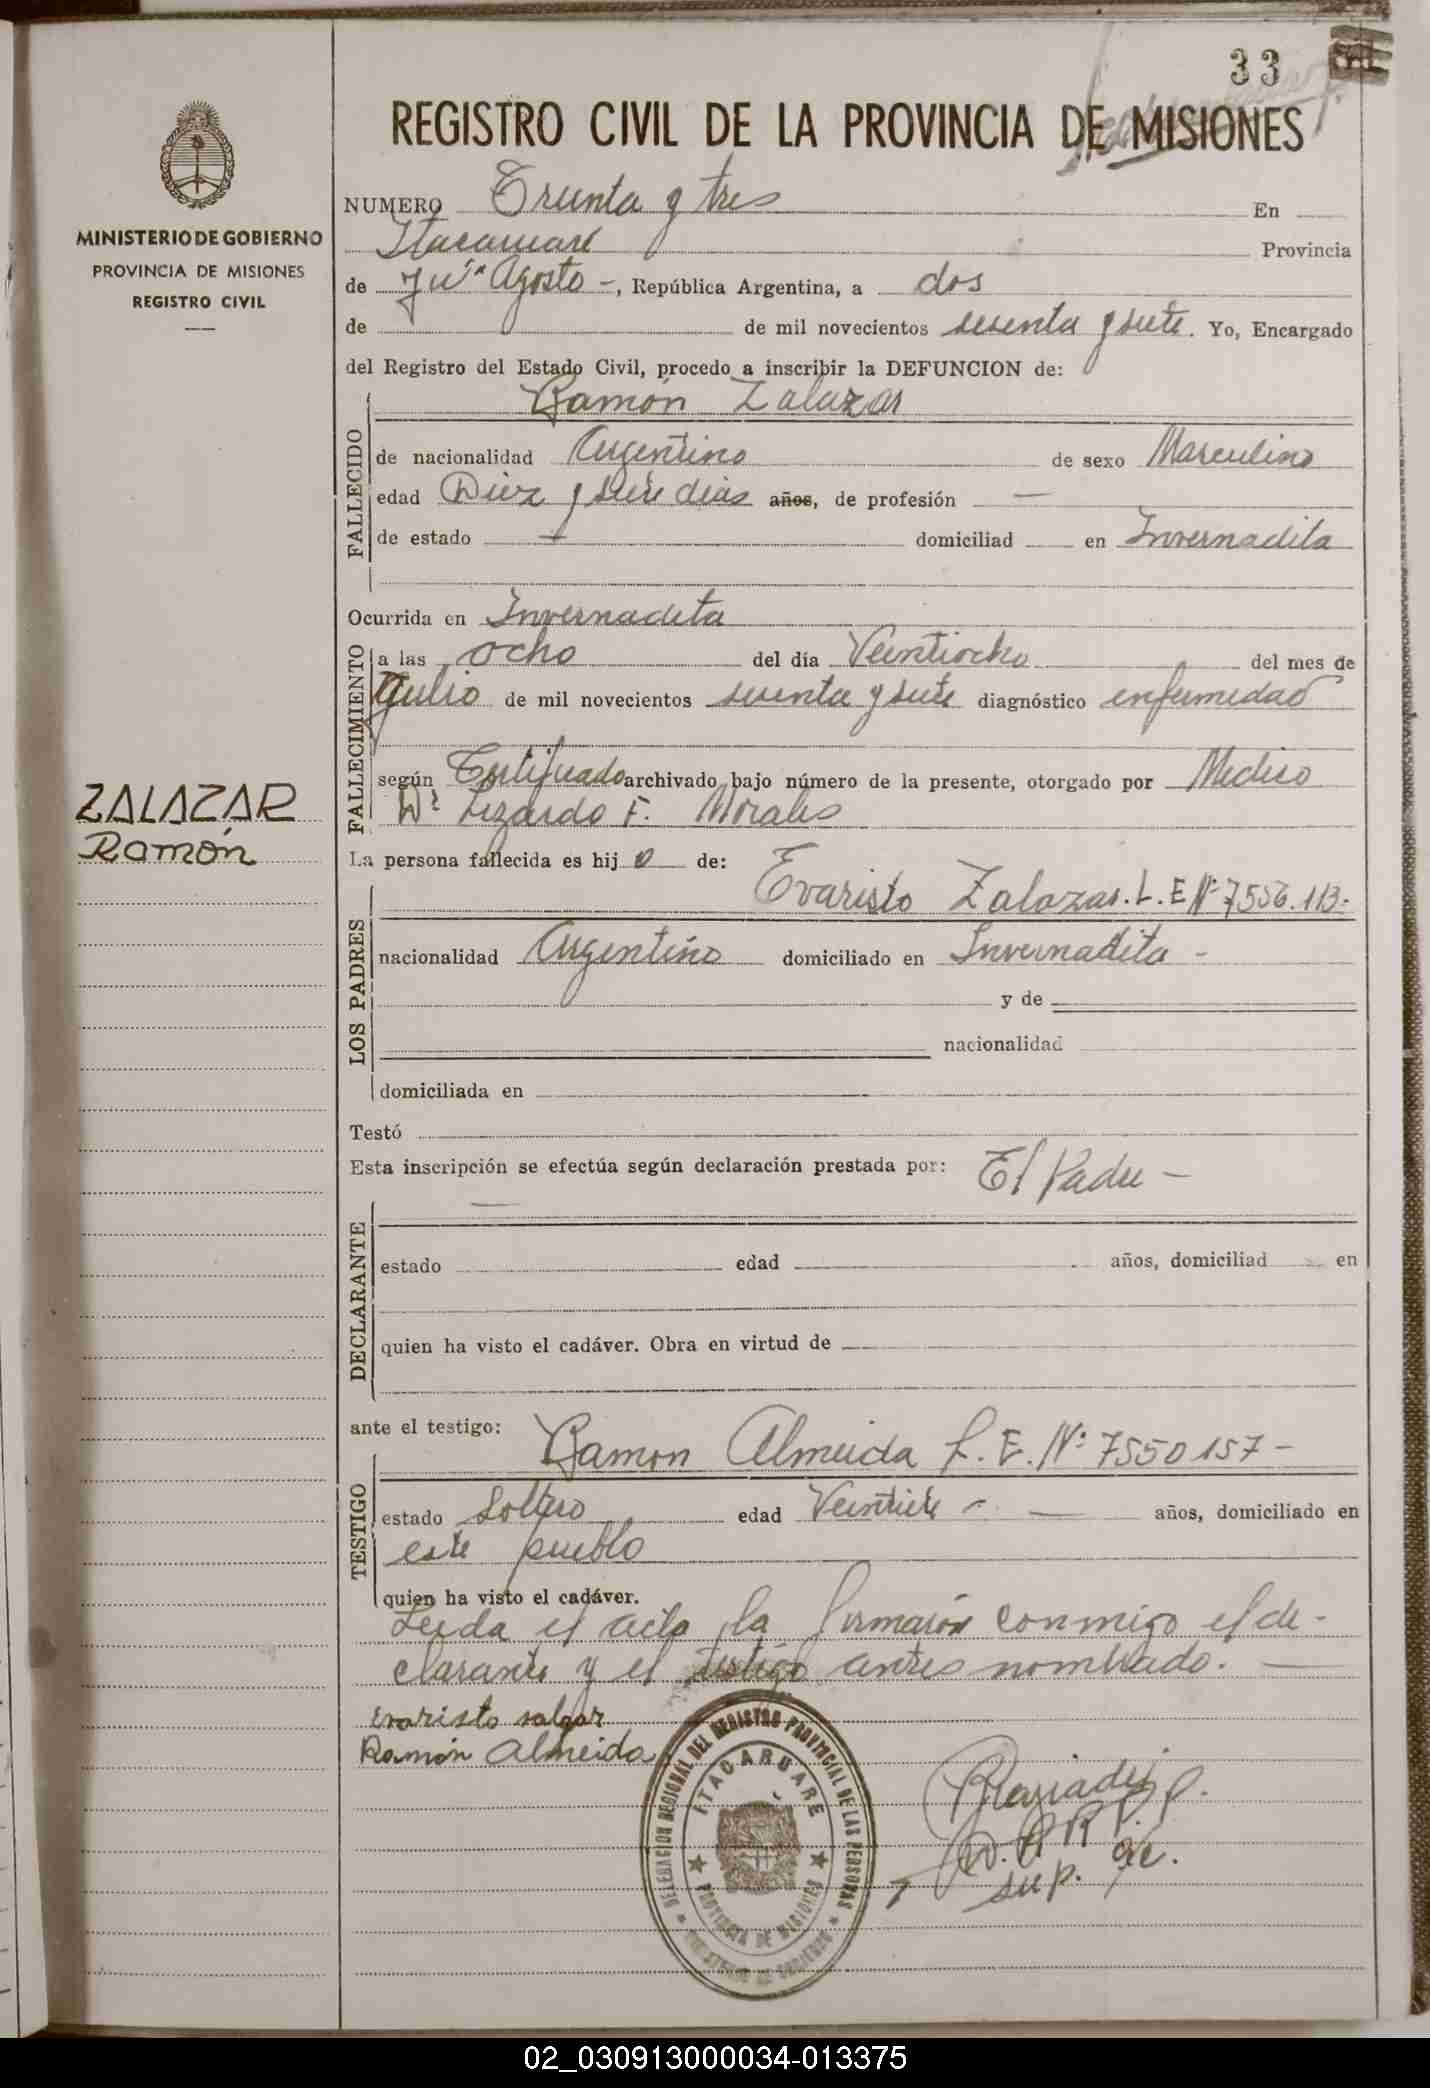 33
REGISTRO CIVIL DE LA PROVINCIA DE MISIONES
MINISTERIO DE GOBIERNO
PROVINCIA DE MISIONES
REGISTRO CIVIL
NUMERO Treinta y tres En
Itacaruaré Provincia
de Agosto -, República Argentina, a dos
de de mil novecientos sesenta y siete. Yo, Encargado
del Registro del Estado Civil, procedo a inscribir la DEFUNCION de:
Ramón Zalazar
FALLECIDO
de nacionalidad Argentino de sexo Masculino
edad Diez y siete dias años, de profesión —
de estado — domiciliad en Invernadita
Ocurrida en Invernadita
FALLECIMIENTO
a las ocho del día Veintiocho del mes de
Julio de mil novecientos sesenta y siete diagnóstico enfermedad
según Certificado archivado bajo número de la presente, otorgado por Medico
Dr Lizardo F. Morales
ZALAZAR
Ramón
La persona fallecida es hij o de:
LOS PADRES
Evaristo Zalazar. L. E Nº 7556.113.-
nacionalidad Argentino domiciliado en Invernadita -
y de
nacionalidad
domiciliada en
Testó
Esta inscripción se efectúa según declaración prestada por: El Padre —
DECLARANTE
estado edad años, domiciliad en
quien ha visto el cadáver. Obra en virtud de
ante el testigo:
TESTIGO
Ramon Almeida L. E. Nº 7550157-
estado Soltero edad — años, domiciliado en
este pueblo
quien ha visto el cadáver.
Leida el acta la firmarón conmigo el de-
clarante y el testigo antes nombrado. —
Evaristo salazar
Ramón Almeida
DELEGACION REGIONAL DEL REGISTRO PROVINCIAL DE LAS PERSONAS
ITACARUARE
PROVINCIA DE MISIONES
MINISTERIO DE GOBIERNO
sup.
02_030913000034-013375